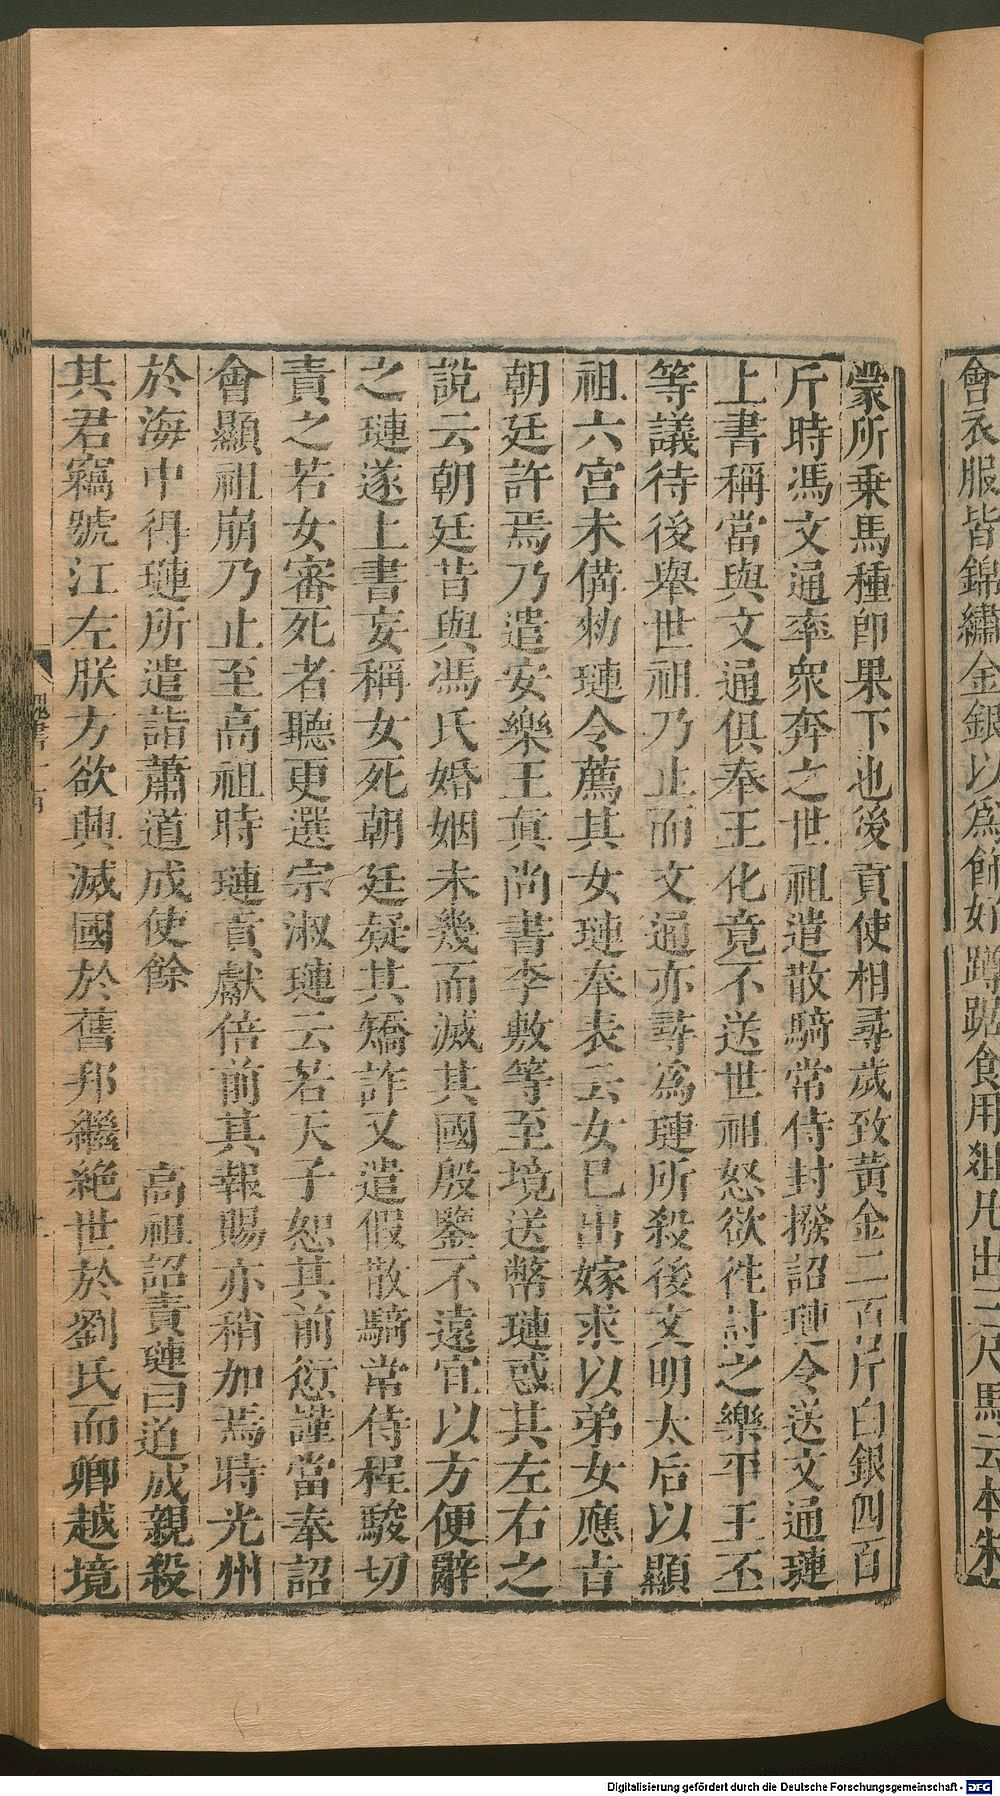 蒙所乗馬種即果下也後貢使相尋歲致黄金二百斤白銀四百
斤時馮文通率衆奔之世祖遣散騎常侍封撥詔璉令送文通璉
上書稱當與文通俱奉王化竟不送世祖怒欲徃討之樂平王丕
等議待後舉世祖乃止而文通亦尋為璉所殺後文明太后以顯
祖六宮未備勑璉令薦其女璉奉表云女巳出嫁求以弟女應旨
朝廷許焉乃遣安樂王眞尚書李敷等至境送幣璉惑其左右之
說云朝廷昔與馮氏婚姻未幾而滅其國殷鑒不遠宜以方便辭
之璉遂上書妄稱女死朝廷疑其矯詐又遣假散騎常侍程駿切
責之若女審死者聽更選宗淑璉云若天子恕其前愆謹當奉詔
會顯祖崩乃止至高祖時璉貢獻倍前其報賜亦稍加焉時光州
於海中得璉所遣詣蕭道成使餘　　　高祖詔責璉曰道成親殺
其君竊號江左朕方欲興滅國於舊邦繼絶世於劉氏而卿越境
會衣服皆錦繡金銀以爲飾好蹲踞食用俎几出三尺馬云本朱
Digitalisierung gefördert durch die Deutsche Forschungsgemeinschaft - DFG